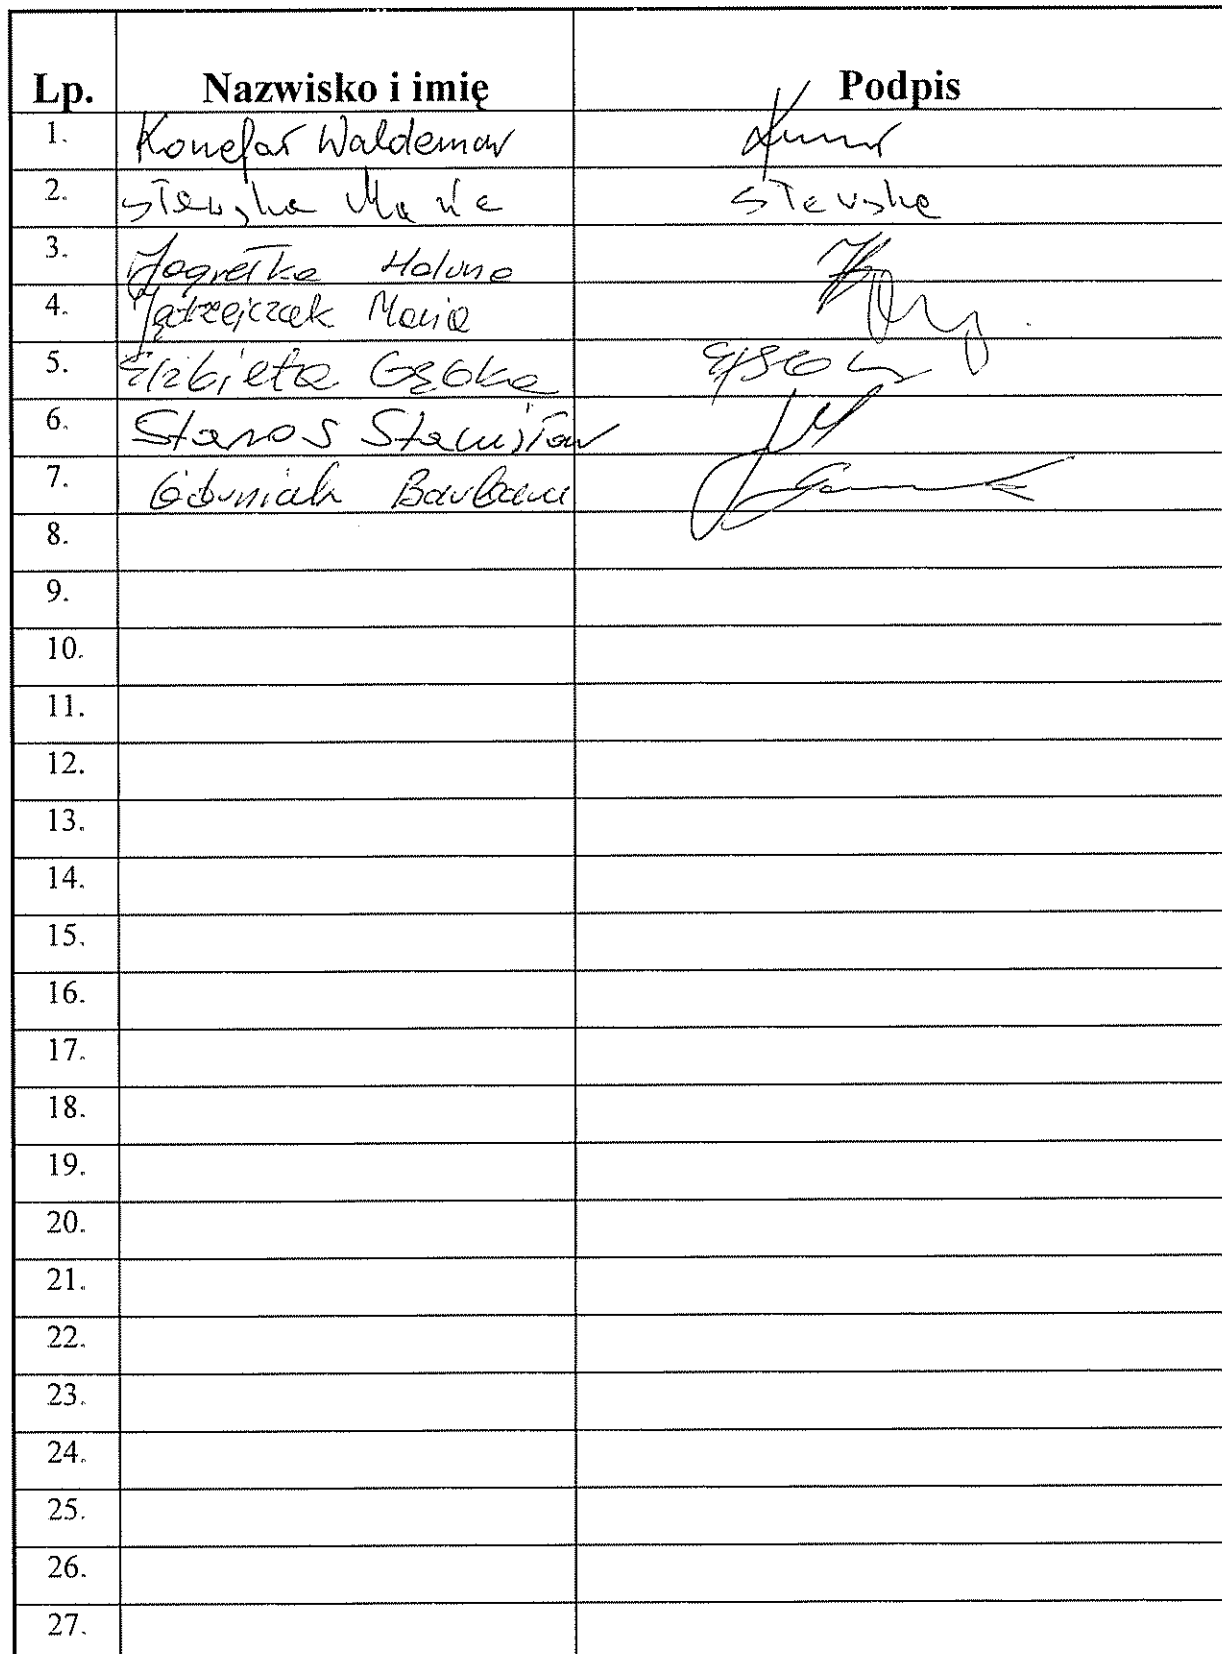 Lp. Nazwisko i imię Podpis
1. Konefał Waldemar
2. Sławska Maria Sławska
3. Halina
4. Jędrzejczak Maria
5. Elżbieta
6. Stanos Stanisław
7. Barbara
8.
9.
10.
11.
12.
13.
14.
15.
16.
17.
18.
19.
20.
21.
22.
23.
24.
25.
26.
27.